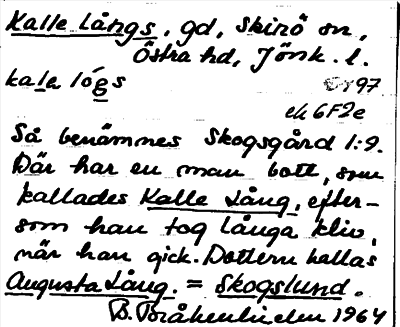 Kalle Långs, gd, Skirö sn,
Östra hd, Jönk. l.
kala lógs
97
ek 6F2e
Så benämnes Skogsgård 1:9.
Där har en man bott, som
kallades Kalle Lång, efter-
som han tog långa kliv,
när han gick. Dottern kallas
Augusta Lång. = Skogslund.
B. Bråhenlinden 1964